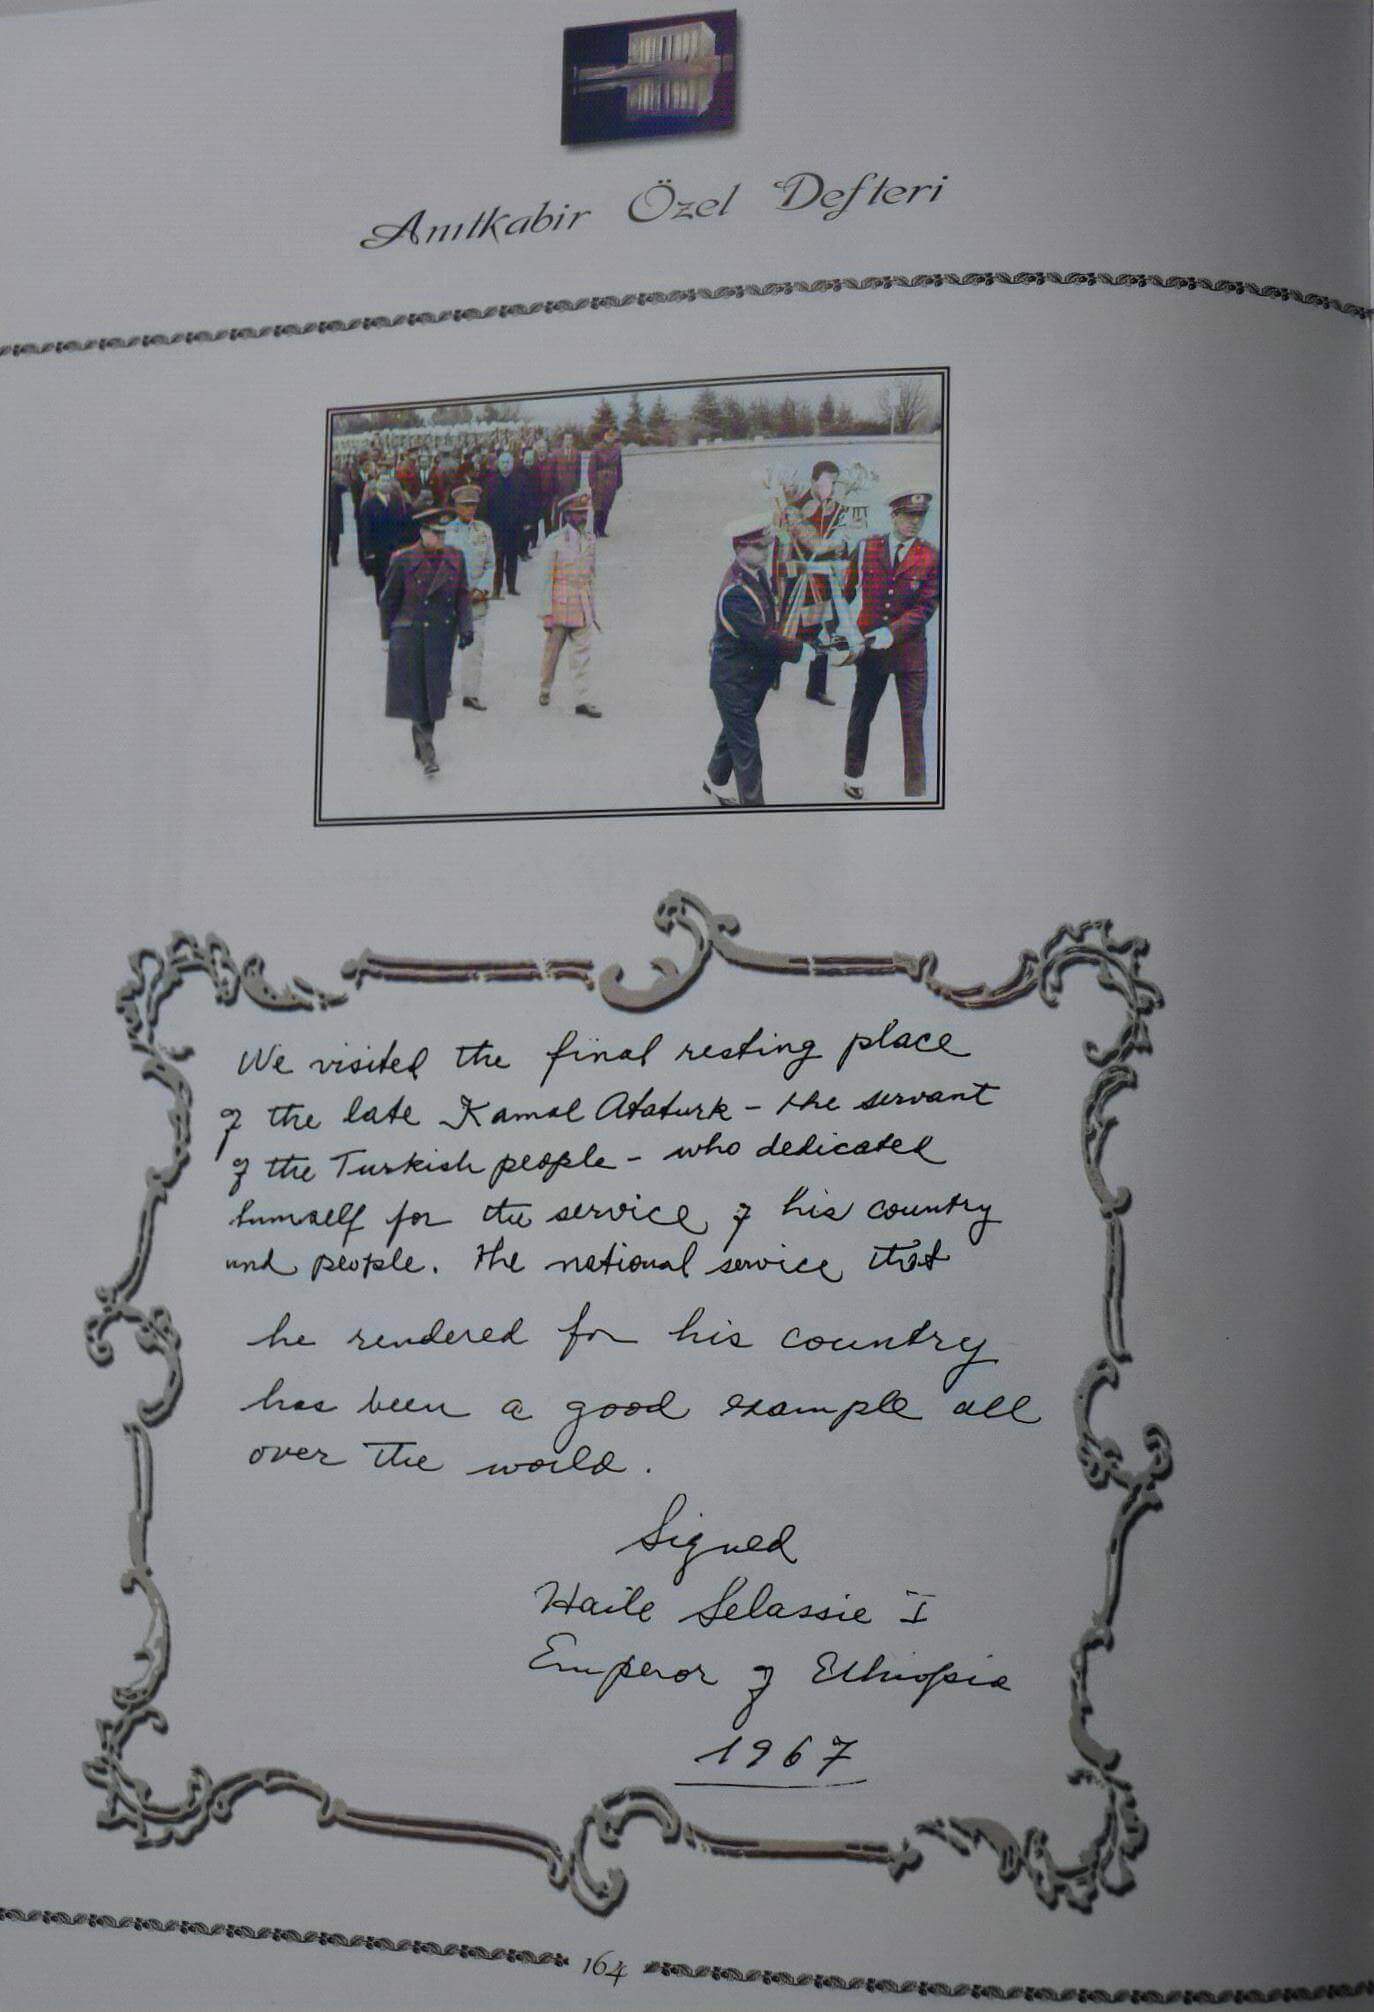 Anıtkabir Özel Defteri
We visited the final resting place
of the late Kamal Ataturk - the servant
of the Turkish people - who dedicated
himself for the service of his country
and people. The national service that
he rendered for his country
has been a good example all
over the world.
Signed
Haile Selassie I
Emperor of Ethiopia
1967
164